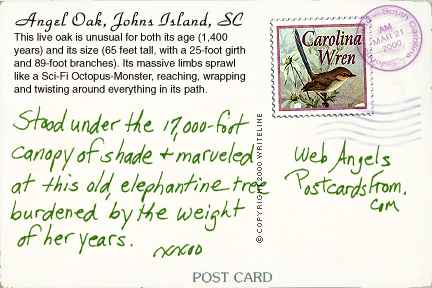 Angel Oak, Johns Island, SC
This live oak is unusual for both its age (1,400
years) and its size (65 feet tall, with a 25-foot girth
and 89-foot branches). Its massive limbs sprawl
like a Sci-Fi Octopus-Monster, reaching, wrapping
and twisting around everything in its path.
Stood under the 17,000-foot
canopy of shade + marveled
at this old, elephantine tree
burdened by the weight
of her years.
xxoo
© COPYRIGHT 2000 WRITELINE
Carolina
Wren
South Carolina
AM
MAR 21
2000
Web Angels
PostcardsFrom.
com
POST CARD